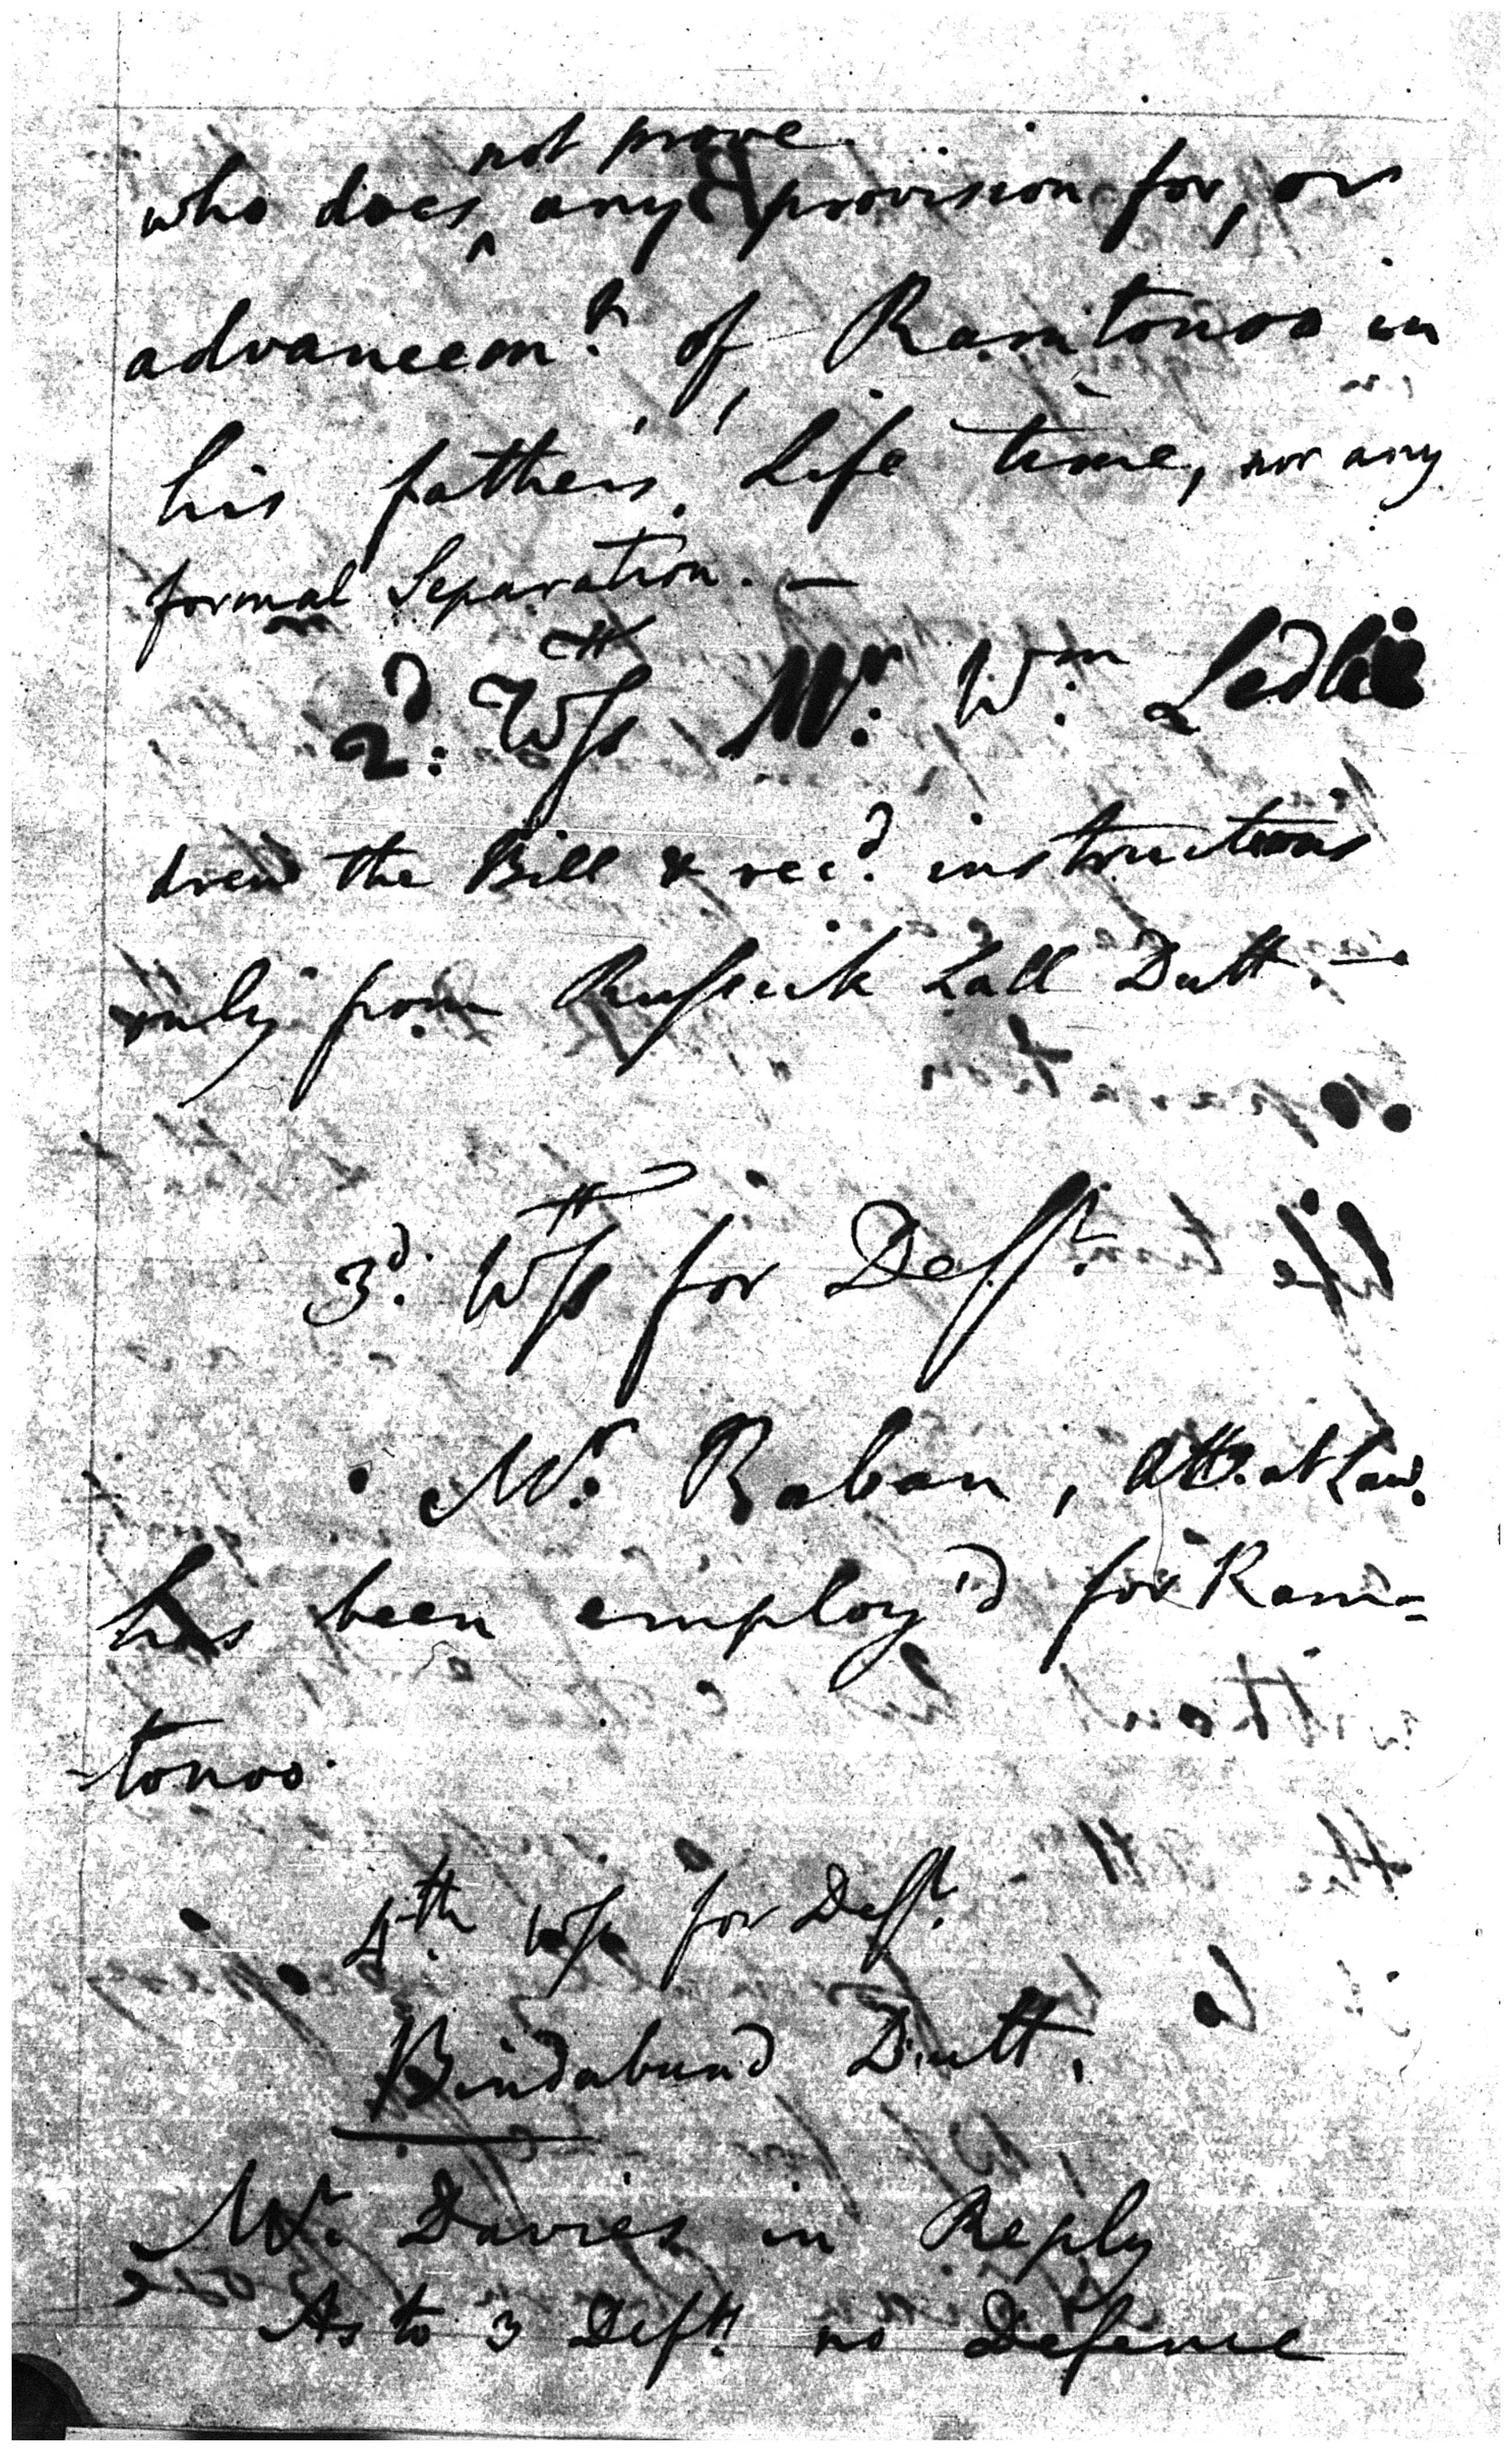 not prove
who does ^ any provision for, or
advancem.t of Ramtonoo in
his father's Life time, nor any
formal Separation. —
2.d Wss Mr. Wm. Ledlie
drew the Bill & rec.d instructions
only from Russick Lall Dutt —
3.d Wss for Deft.
Mr. Raban, Att. at Law.
has been employ'd for Ram=
-tonoo.
4th Wss for Deft.
Bindabund Dutt.
Mr. Davies in Reply
As to 3 Defts. no Defence